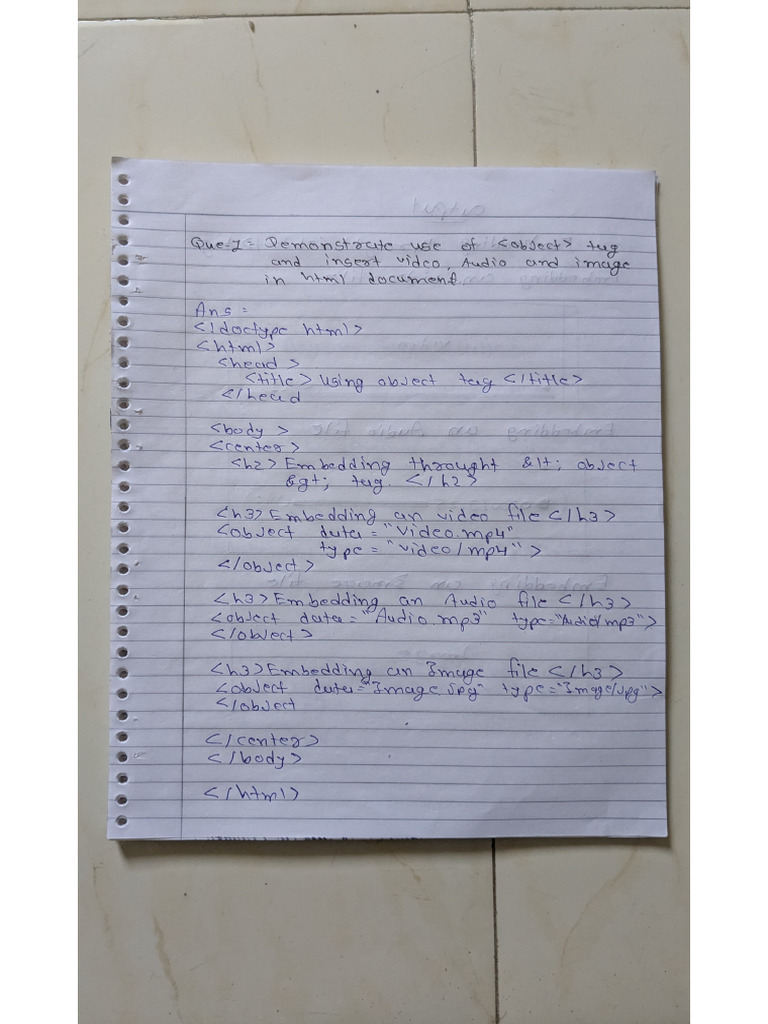 Que-1= Demonstrate use of <object> tag
and insert video, Audio and image
in html document.
Ans =
<!doctype html>
<html>
<head>
<title> Using object tag </title>
</head
<body>
<center>
<h2> Embedding throught &lt; object
&gt; tag. </h2>
<h3> Embedding an video file </h3>
<object data = "Video.mp4"
type = "video/mp4">
</object>
<h3> Embedding an Audio file </h3>
<object data = "Audio.mp3" type="Audio/mp3">
</object>
<h3> Embedding an Image file </h3>
<object data="Image.jpg" type="Image/jpg">
</object
</center>
</body>
</html>